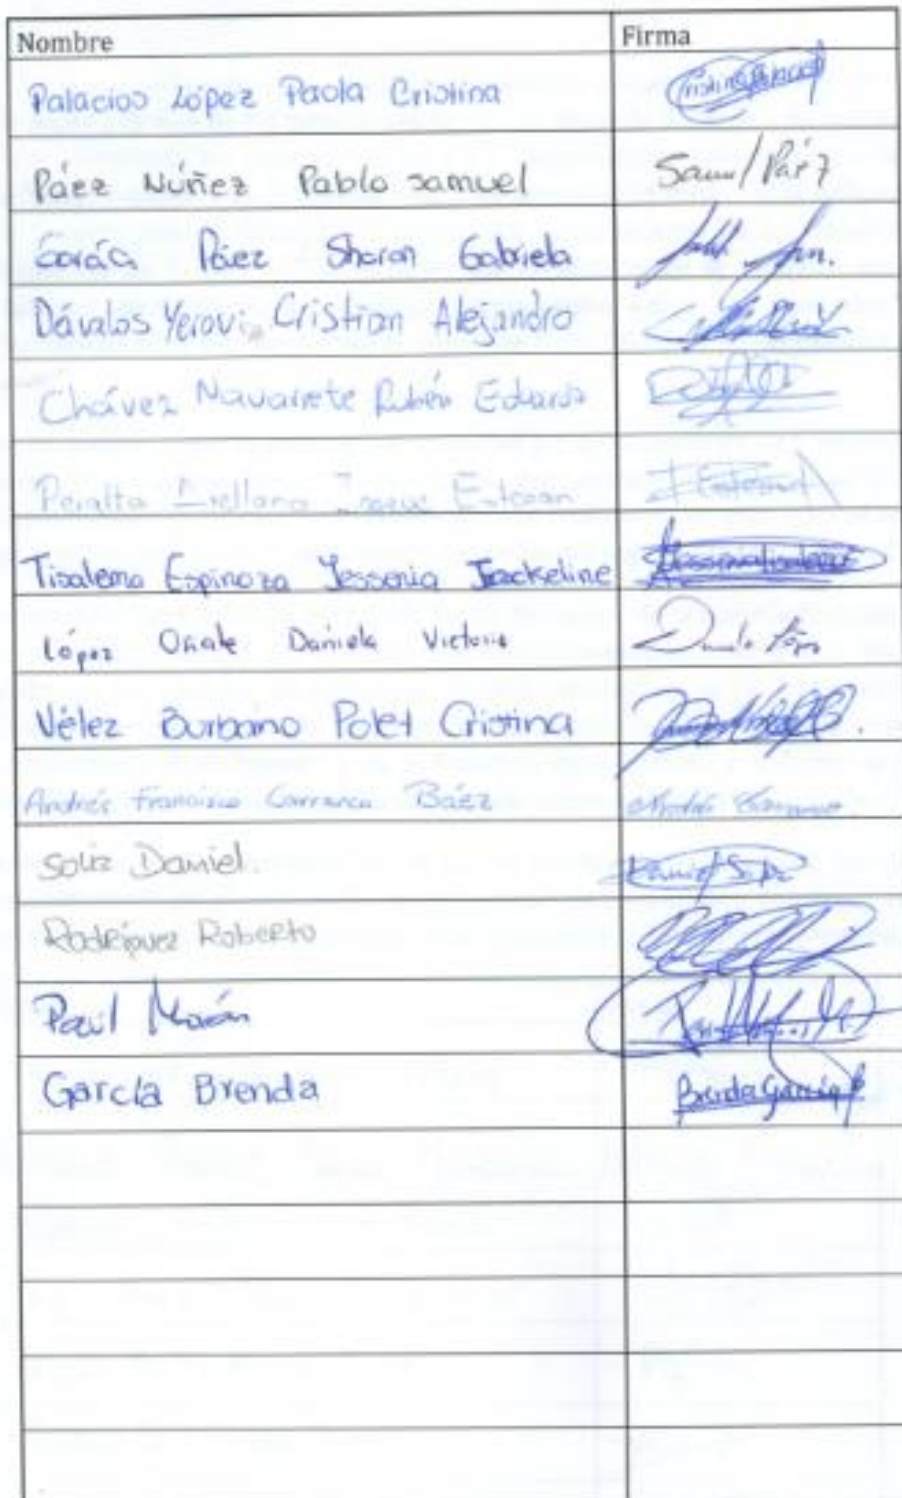 Nombre Firma
Palacios López Paola Cristina Cristina Palacios
Páez Núñez Pablo Samuel Samuel Páez
García Páez Sharon Gabriela
Dávalos Yerovi Cristian Alejandro
Chávez Navarrete Rubén Eduardo
Peralta Arellano Esteban
Tisalema Espinoza Yessenia Jackeline
López Oñate Daniela Victoria Daniela López
Vélez Burbano Polet Cristina
Andrés Francisco Carranco Báez Andrés Carranco
Soliz Daniel. Daniel
Rodríguez Roberto
Paúl Morán
García Brenda Brenda García